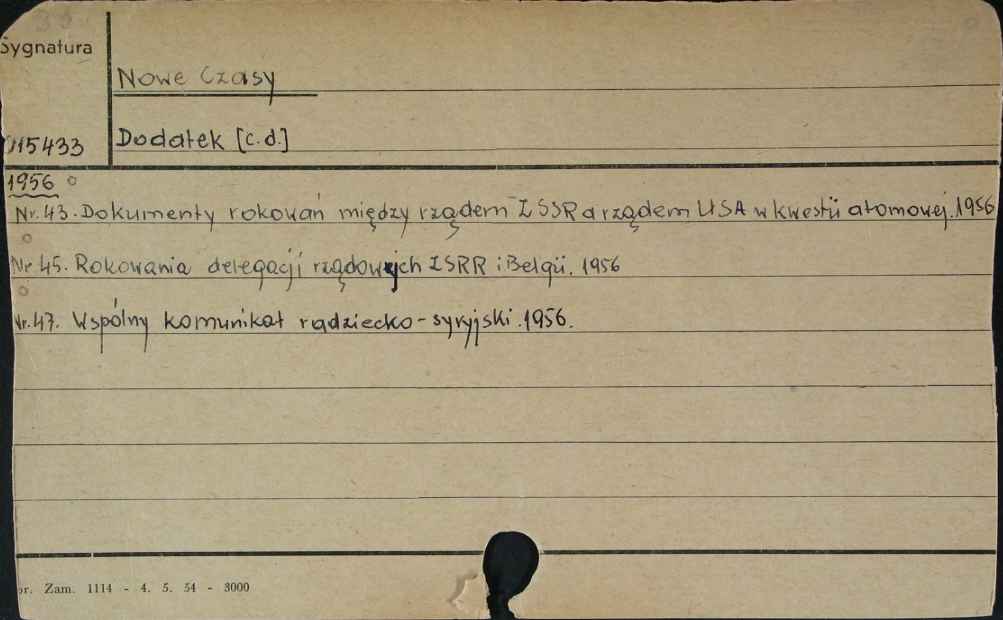 Sygnatura
Nowe Czasy
15433
Dodatek [c.d.]
1956
Nr. 43. Dokumenty rokowań między rządem ZSSR a rządem USA w kwestii atomowej. 1956
Nr 45. Rokowania delegacji rządowych ZSRR i Belgii. 1956
Nr. 47. Wspólny komunikat radziecko-syryjski. 1956.
Zam. 1114 - 4. 5. 54 - 3000